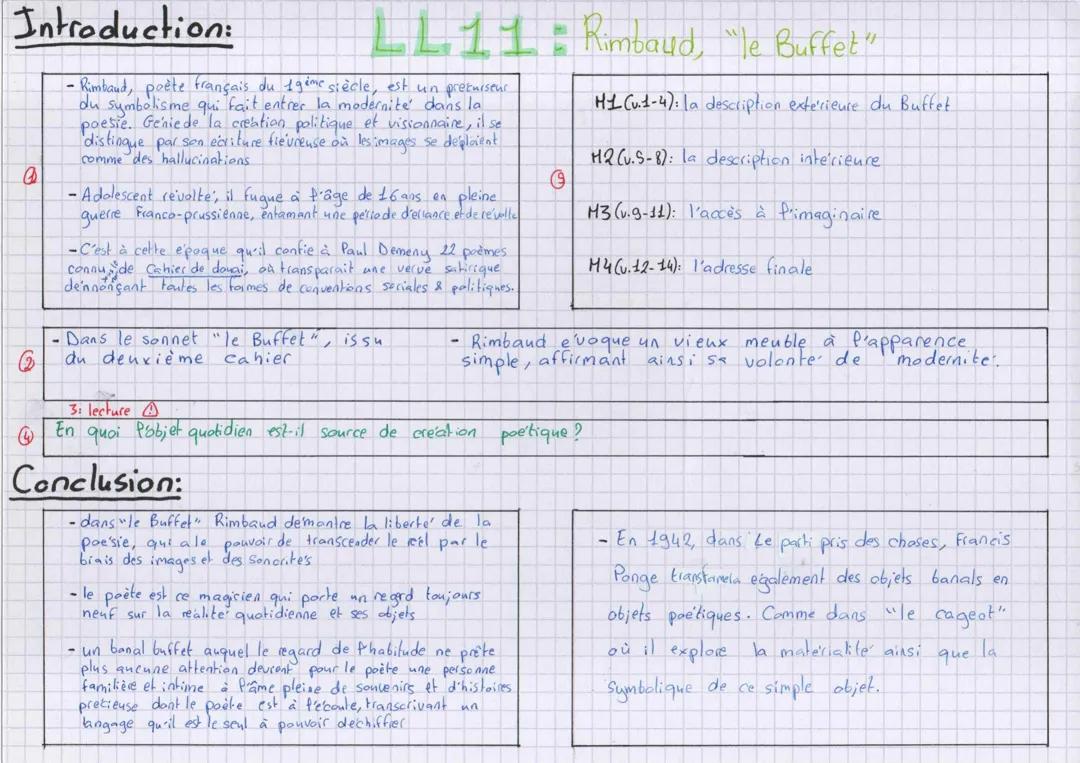 Introduction:
LL11: Rimbaud, "le Buffet"
- Rimbaud, poète français du 19ème siècle, est un precurseur
du symbolisme qui fait entrer la modernité dans la
poesie. Génie de la création politique et visionnaire, il se
distingue par son écriture fiévreuse où les images se déploient
comme des hallucinations
①
- Adolescent révolté, il fugue à l'âge de 16 ans en pleine
guerre Franco-prussienne, entamant une periode d'errance et de révolte
- C'est à cette époque qu'il confie à Paul Demeny 22 poèmes
connu de Cahier de douai, où transparait une verve satirique
dénnonçant toutes les formes de conventions sociales & politiques.
⑤
M1 (v.1-4): la description extérieure du Buffet
M2 (v.5-8): la description intérieure
M3 (v.9-11): l'accès à l'imaginaire
M4 (v.12-14): l'adresse finale
②
- Dans le sonnet "le Buffet", issu
du deuxième cahier
- Rimbaud évoque un vieux meuble à l'apparence
simple, affirmant ainsi sa volonté de modernité.
3: lecture ⚠
④
En quoi l'objet quotidien est-il source de création poétique?
Conclusion:
- dans "le Buffet" Rimbaud démontre la liberté de la
poésie, qui a le pouvoir de transcender le réel par le
biais des images et des sonorités
- le poète est ce magicien qui porte un regard toujours
neuf sur la réalité quotidienne et ses objets
- un banal buffet auquel le regard de l'habitude ne prête
plus aucune attention devient pour le poète une personne
familière et intime à l'âme pleine de souvenirs et d'histoires
précieuse dont le poète est à l'écoute, transcrivant un
langage qu'il est le seul à pouvoir déchiffrer
- En 1942, dans Le parti pris des choses, Francis
Ponge transformera également des objets banals en
objets poétiques. Comme dans "le cageot"
où il explore la matérialité ainsi que la
symbolique de ce simple objet.